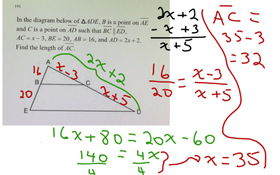 In the diagram below of △ADE, B is a point on AE
and C is a point on AD such that BC ∥ ED,
AC = x – 3, BE = 20, AB = 16, and AD = 2x + 2.
Find the length of AC.
2x+2
- x +3
x+5
AC =
35-3
=32
A
16
x-3
2x+2
B
C
20
x+5
E
D
16/20 = x-3/x+5
16x+80 = 20x-60
140/4 = 4x/4
→ x=35